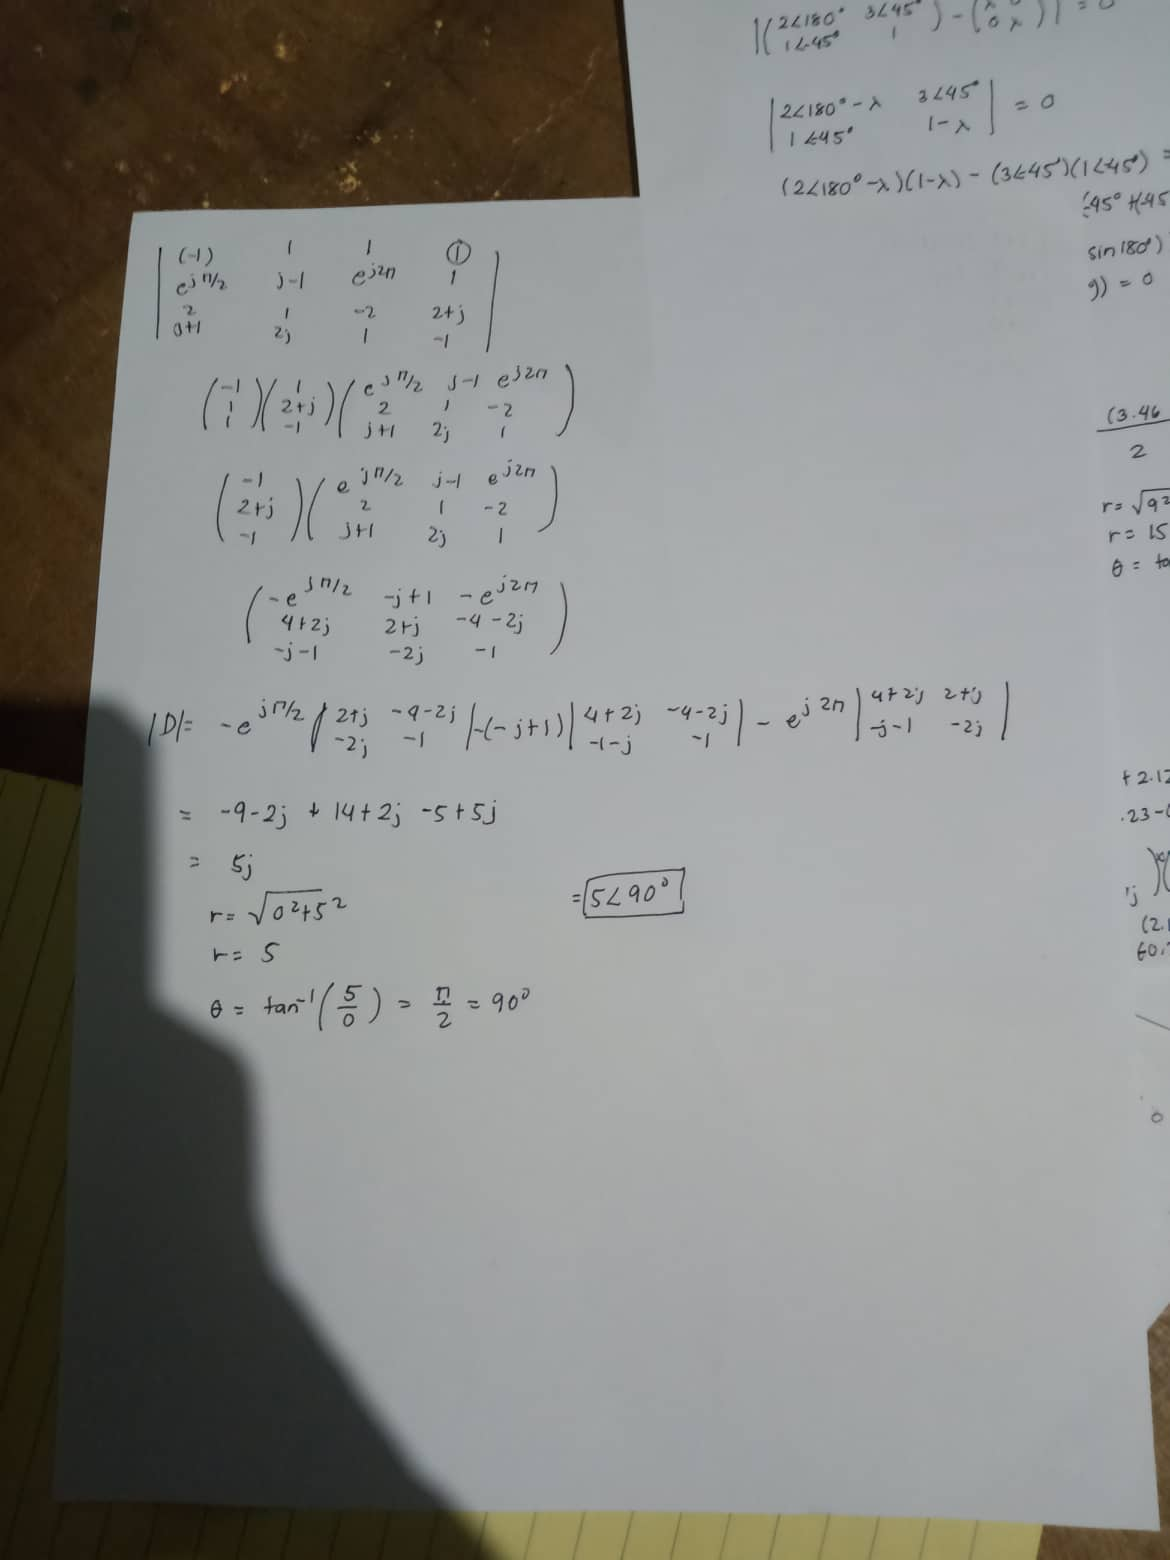 |(2∠180° 3∠45°) - (λ 0)| = 0
1∠-45° 1 0 λ
|2∠180°-λ 3∠45°| = 0
1∠45° 1-λ
(2∠180°-λ)(1-λ) - (3∠45°)(1∠45°) =
sin 180°)
= 0
(3.46
2
r = 15
θ = ta
+ 2.12
.23-
(2.1
60.
0
(-1) 1 1 1
e^jπ/2 j-1 e^j2π 1
2 1 -2 2+j
j+1 2j 1 -1
(-1)(1)(e^jπ/2 j-1 e^j2π)
1 2+j 2 1 -2
1 -1 j+1 2j 1
(-1)(e^jπ/2 j-1 e^j2π)
2+j 2 1 -2
-1 j+1 2j 1
(-e^jπ/2 -j+1 -e^j2π)
4+2j 2+j -4-2j
-j-1 -2j -1
|D|= -e^jπ/2 |2+j -4-2j| -(-j+1) |4+2j -4-2j| - e^j2π |4+2j 2+j|
-2j -1 -1-j -1 -j-1 -2j
= -9-2j + 14+2j -5+5j
= 5j
r= √0²+5²
= 5∠90°
r= 5
θ = tan⁻¹(5/0) = π/2 = 90°